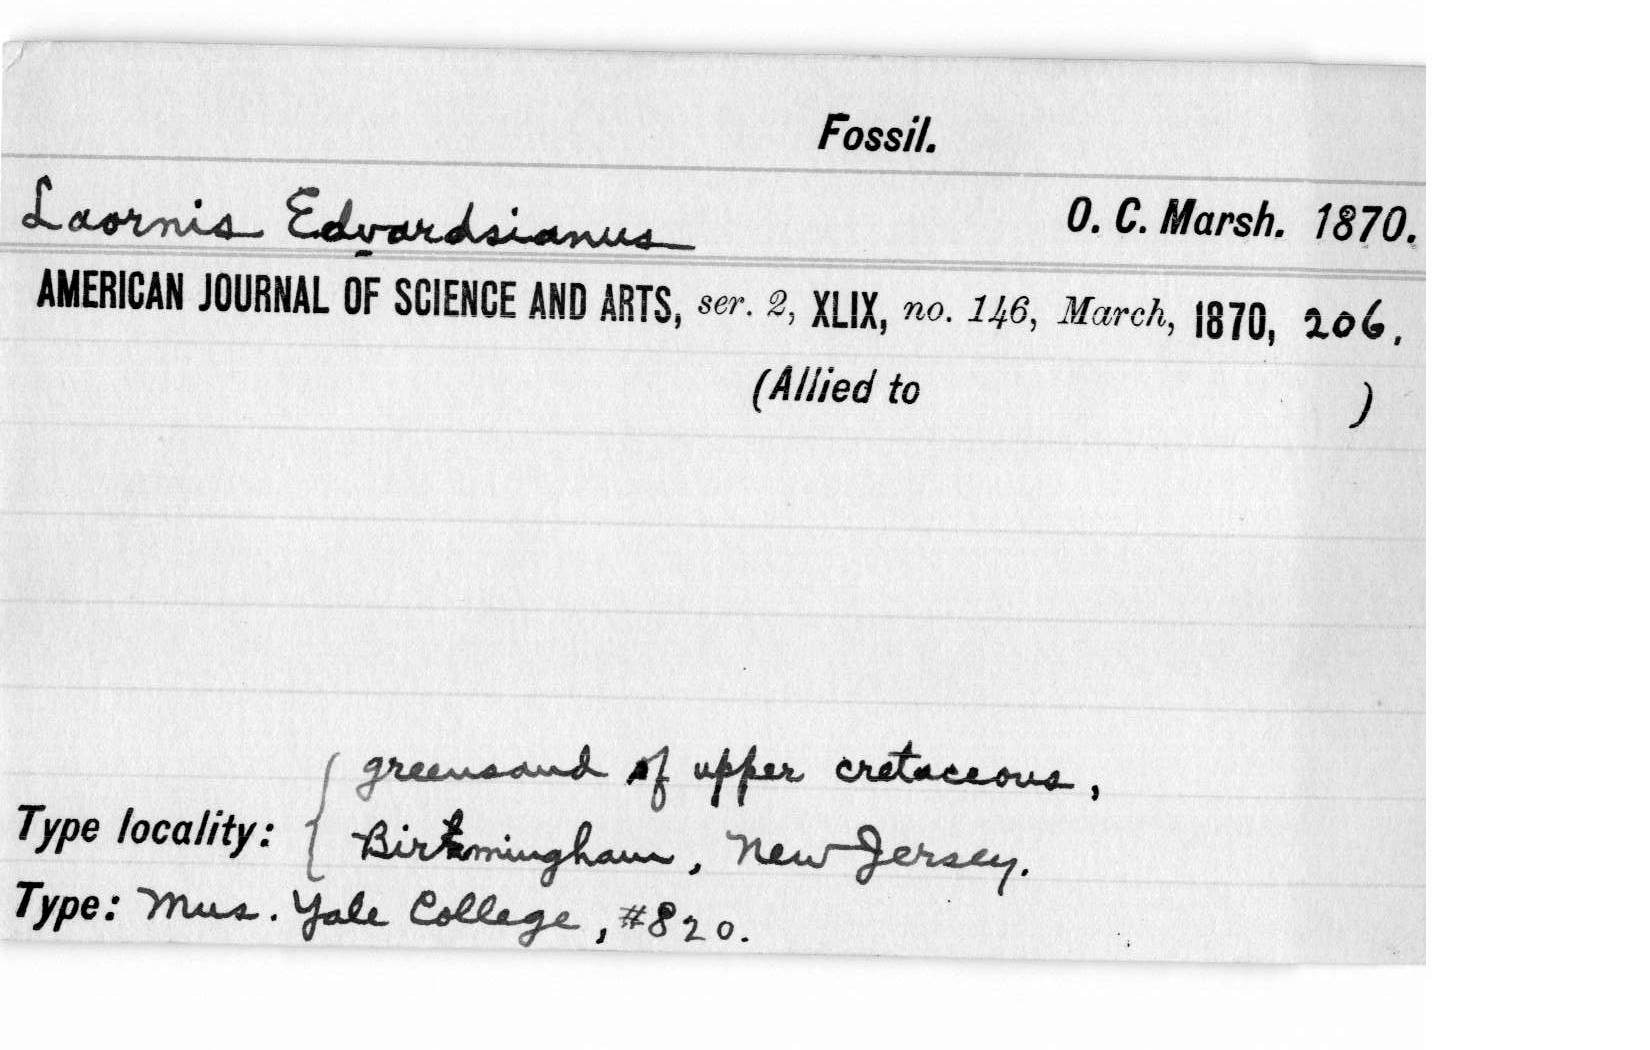 Fossil.
Laornis Edvardsianus O. C. Marsh. 1870.
AMERICAN JOURNAL OF SCIENCE AND ARTS, ser. 2, XLIX, no. 146, March, 1870, 206.
(Allied to )
greensand of upper cretaceous,
Type locality: { Birmingham, New Jersey.
Type: Mus. Yale College, #820.